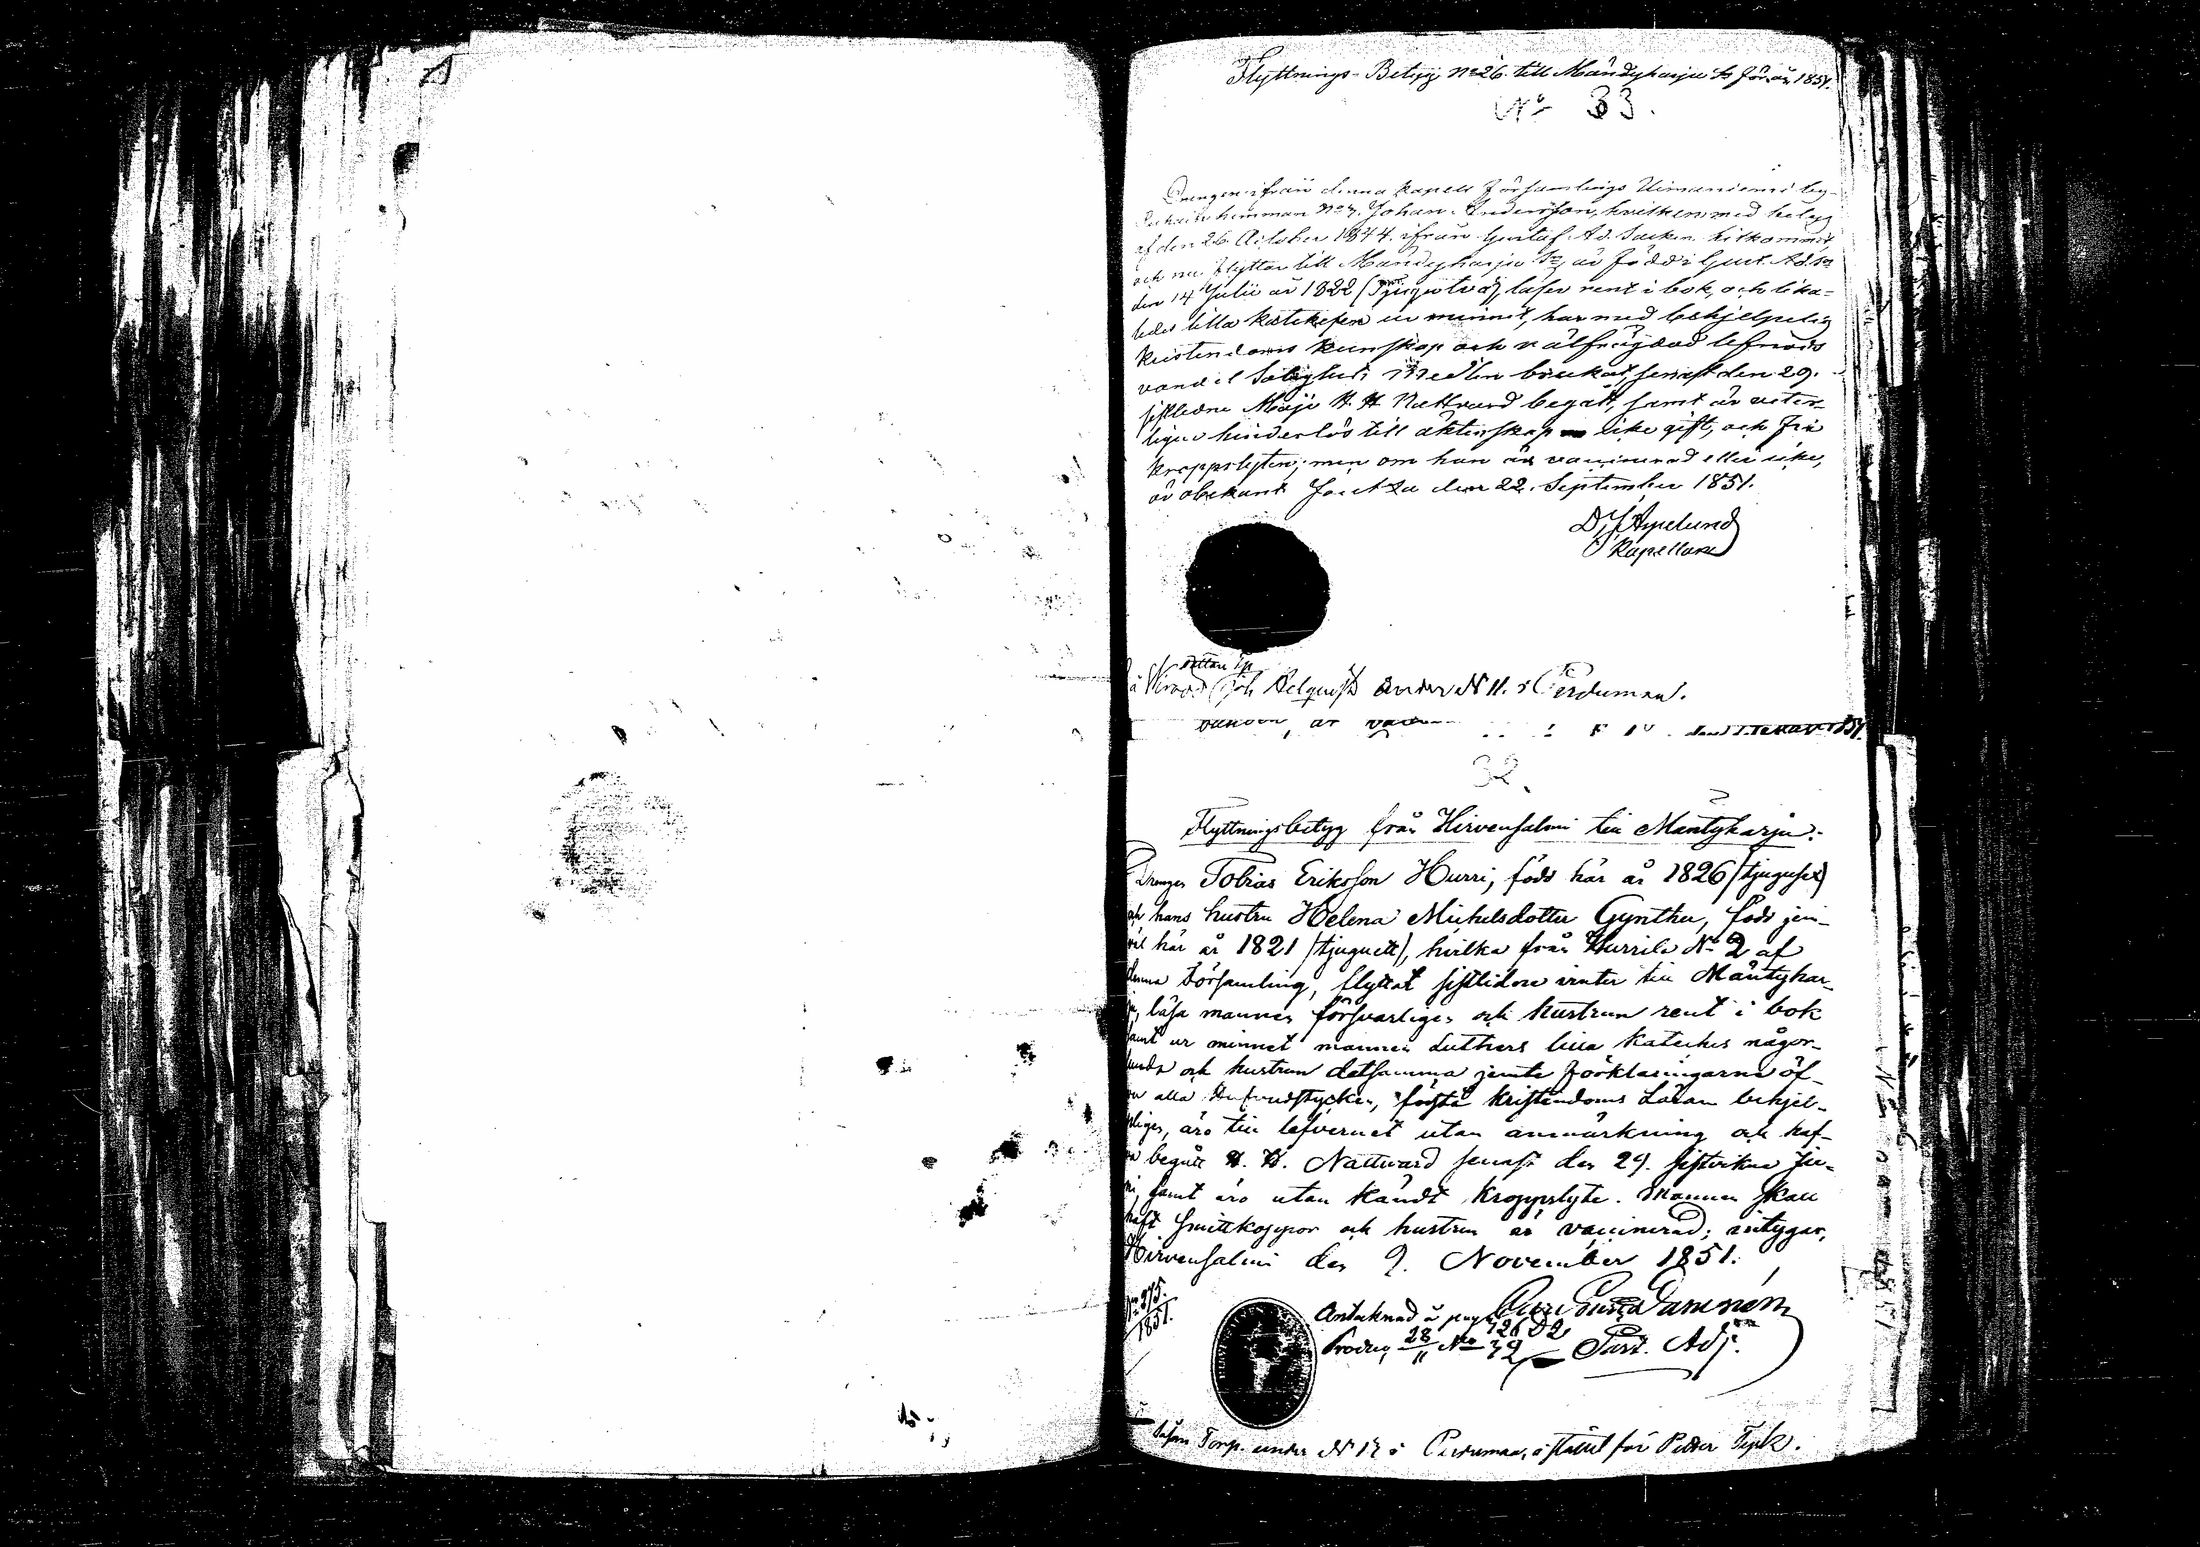 Flyttnings-Betyg No 26. till Mändyharju Sn för år 1851.
No 33.
Drengen ifrån denna kapell församlings Uimaniemi by
hemman No 7. Johan Andersson, hvilken med betyg
af den 26 October 1844. ifrån Gustaf Ad. Socken hitkommit,
och nu flyttar till Mändyharju Sn, är född i Gust. Ad. Sn
den 14 Julii år 1822 (Tjugutvå), läser rent i bok, och lika-
ledes lilla katekesen ur minnet, har med behjelpelig
kristendoms kunskap och välfrägdad lefnads
vandel Salighets Medlen brukat, senast den 29.
sistledne Maji H. H. Nattvard begått, samt är veter-
ligen hinderlös till äktenskap icke gift, och fri
kroppslyten; men om han är vaccinerad eller icke,
är obekant den 22. September 1851.
Kapellan
under N 11. i Pärduman.
32.
Flyttningsbetyg från Hirvensalmi till Mäntyharju.
Drengen Tobias Eriksson Hurri, född här år 1826 (tjugusex)
och hans hustru Helena Michelsdotter Gynther, född jem-
väl här år 1821 (tjuguett), hvilka från Hurrila No 2 af
denna församling, flyttat sistlidne vinter till Mäntyhar-
ju, läsa mannen försvarligen och hustrun rent i bok
samt ur minnet mannen Luthers lilla kateches någor-
lunda och hustrun detsamma jemte förklaringarne öf-
ver alla Hufvudstycken, förstå kristendoms Läran behjel-
pligen, äro till lefvernet utan anmärkning och haf-
va begått H. H. Nattvard senast den 29. sistvikne Ju-
ni, samt äro utan kändt kroppslyte. Mannen skall
haft smittkoppor och hustrun är vaccinerad; intygar,
Hirvensalmi den 9. November 1851.
No 315.
1851.
Antecknad å pag 726 D 2
28/11 No 32
Past. Adj.
Torp. under N 17 i Pärduman, i stället för Petter Tysk.